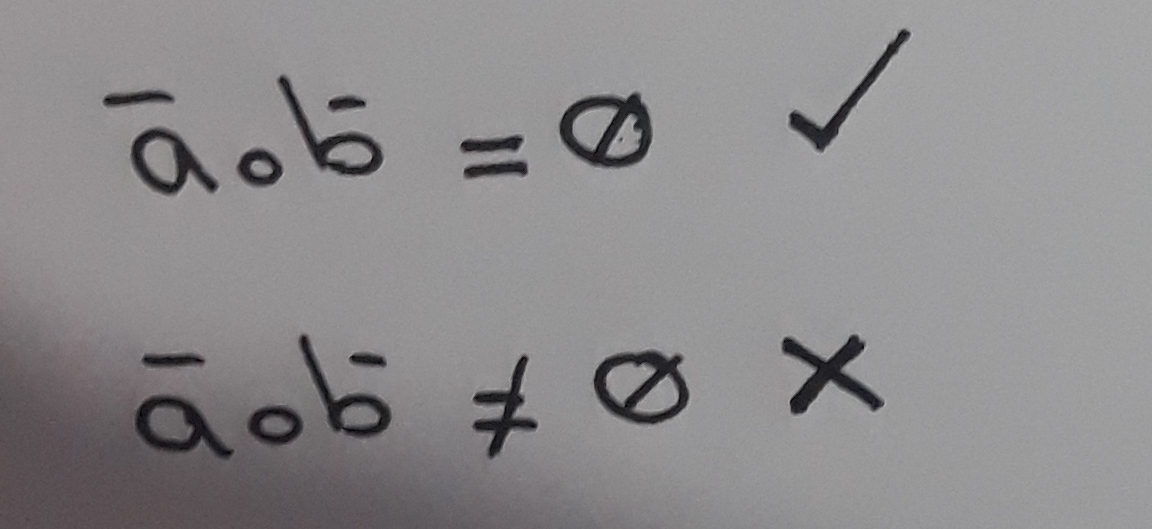 a̅ ∘ b̅ = ∅ ✓
a̅ ∘ b̅ ≠ ∅ ✗